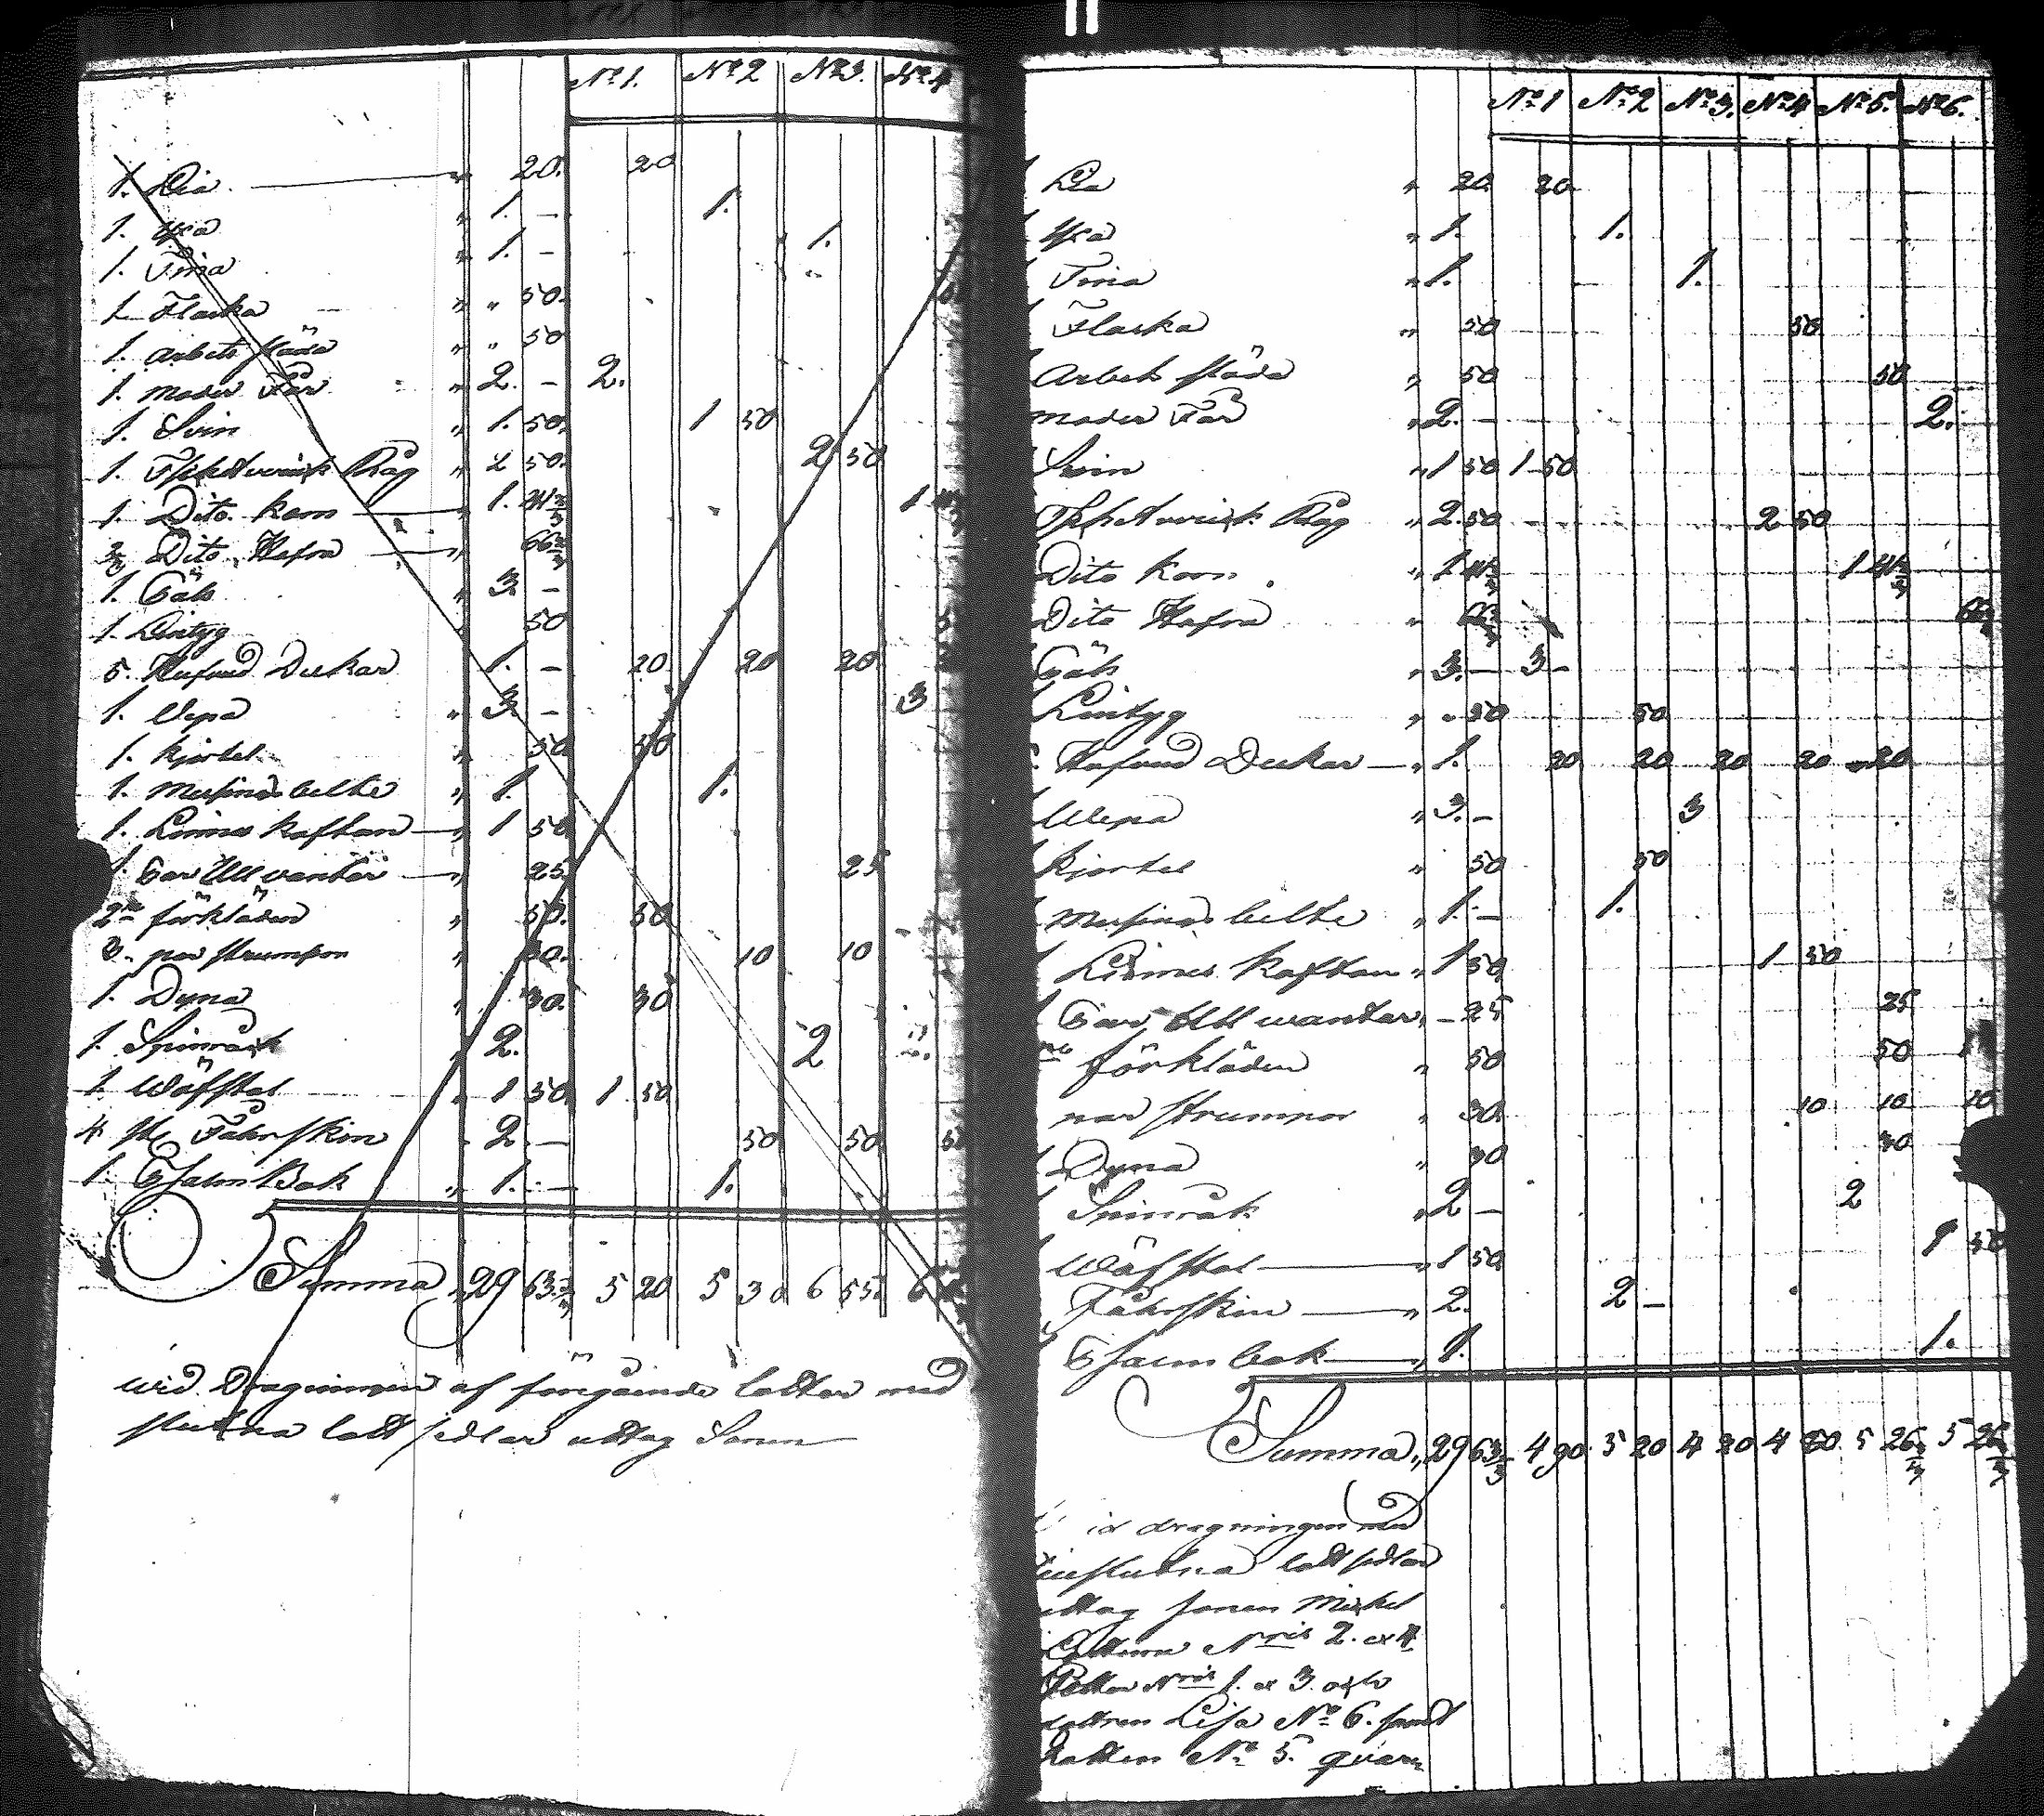 No 1. No 2 No 3. No 4
1. Lia " 20. 20
1. Yxa " 1. — 1.
1. Tina " 1. — 1.
1. Flaska " " 50.
1. Arbets släda " " 50
1. Moder Får " 2. — 2.
1. Svin " 1. 50. 1 50
1. Råg " 2 50. 2 50
1. Dito Korn " 1. 41 2/3 1
2/3 Dito Hafra " 66 2/3
1. " 3 —
1. Lintyg 50
5. Hufvud Dukar 1. — 20 20 20
1. Wepa " 3 — 3
1. Kjortel 50 50
1. Messings belte " 1. 1.
1. Linnes Kaftan " 1 50
1. Par Ull vantar " 25 25
2ne förkläden " 50. 50
3. par strumpor " 30. 10 10
1. Dyna " 30. 30
1. Spinråk " 2. 2
1. Wäfstol " 1 50 1 50
4 st Fåhrskin " 2. — 50 50
1. Psalm Bok " 1. — 1.
Summa " 29 63 1/3 5 20 5 30 6 55 6
wid Dragningen af föregående lotter med
slutna lott sedlar uttog Sonen
No 1 No 2 No 3. No 4 No 5. No 6.
Lia " 20 20
Yxa " 1. 1.
Tina " 1. 1.
Flaska " 50 50
Arbets släda " 50 50
Moder Får " 2. — 2.
Svin " 1 50 1 50
Råg " 2. 50 2 50
Dito Korn " 1 41 2/3 1 41 2/3
Dito Hafra " 66 2/3 66 2/3
" 3. — 3 —
Lintyg " 50 50
Hufvud Dukar — " 1. 20 20 20 20 20
Wepa " 3. — 3
Kjortel " 50 50
Messings belte " 1. — 1.
Linnes Kaftan " 1 50 1 50
Par Ull wantar " — 25 25
förkläden " 50 50
par strumpor " 30 10 10 10
Dyna " 30 30
Spinråk " 2 — 2
Wäfstol " 1 50 1 50
Fåhrskin " 2. 2 —
Psalm bok " 1. 1.
Summa " 29 63 1/3 4 90 5 20 4 20 4 80 5 26 2/3 5 26 2/3
id dragningen med
slutna lott sedlar
uttog sonen Mickel
Lotterne Nris 2. o 4
Petter Nris 1. o 3. och
dottren Lisa No 6. samt
No 5.